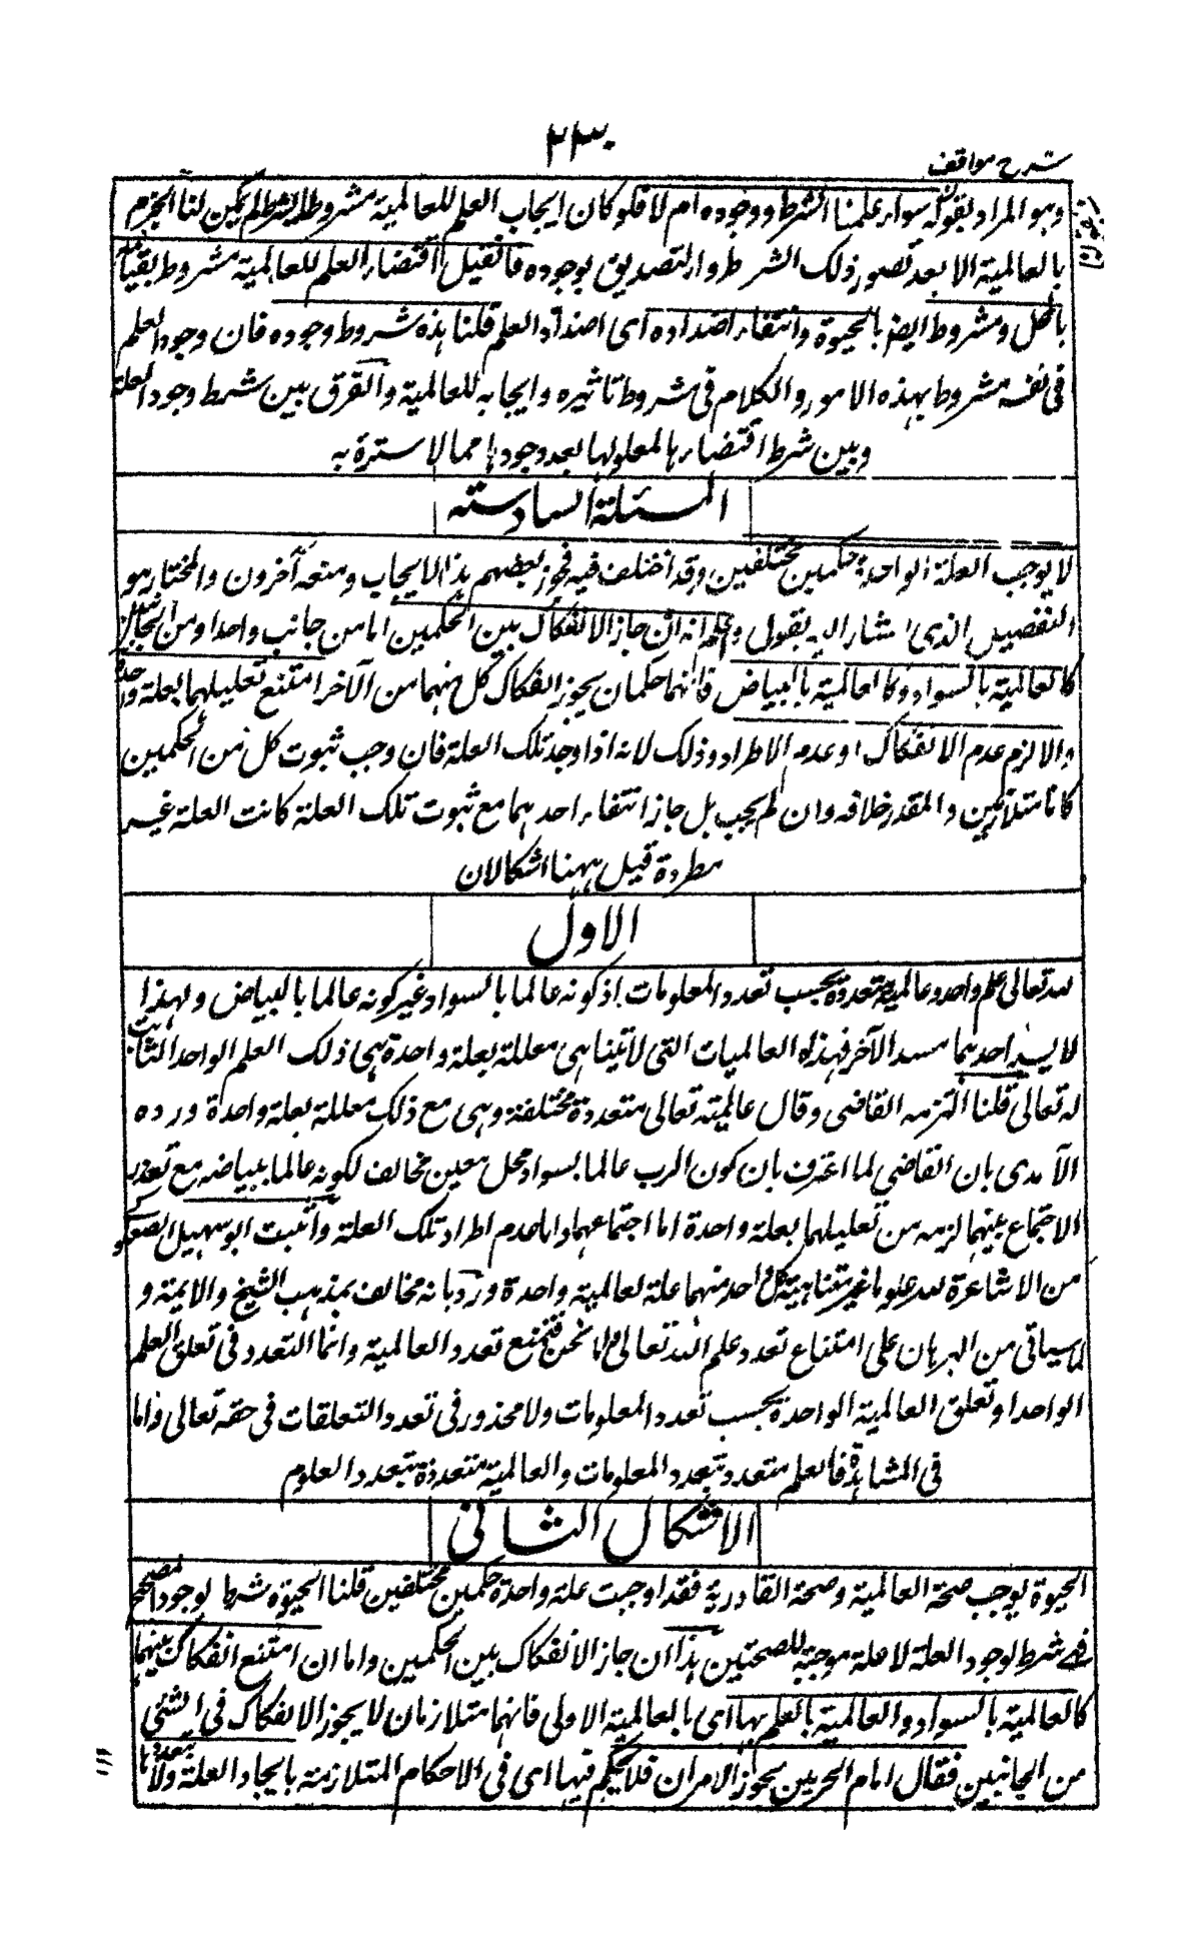 ٢٣٠
شرح مواقف
وهو المراد بقوله سواء علمنا الشرط ووجوده ام لا فلو كان ايجاب العلم للعالمية مشروطا بشرط لم يمكن لنا الجزم
بالعالمية الا بعد تصور ذلك الشرط والتصديق بوجوده فان قيل اقتضاء العلم للعالمية مشروط بقيامه
بالمحل ومشروط ايضا بالحيوة وانتفاء اضداده اى اضداد العلم قلنا هذه شروط وجوده فان وجود العلم
فى نفسه مشروط بهذه الامور والكلام فى شروط تاثيره وايجابه للعالمية والفرق بين شرط وجود العلة
وبين شرط اقتضائها لمعلولها بعد وجودها مما لا سترة به
المسئلة السادسة
لا يوجب العلة الواحدة حكمين مختلفين وقد اختلف فيه فجوز بعضهم هذا الايجاب ومنعه آخرون والمختار هو
التفصيل الذى اشار اليه بقوله واعلم انه ان جاز الانفكاك بين الحكمين اما من جانب واحد او من الجانبين
كالعالمية بالسواد وكالعالمية بالبياض فانهما حكمان يجوز انفكاك كل منهما من الآخر امتنع تعليلهما بعلة واحدة
والا لزم عدم الانفكاك او عدم الاطراد وذلك لانه اذا وجد تلك العلة فان وجب ثبوت كل من الحكمين
كانا متلازمين والمقدر خلافه وان لم يجب بل جاز انتفاء احدهما مع ثبوت تلك العلة كانت العلة غير
مطردة قيل ههنا اشكالان
الاول
لله تعالى علم واحد وعالمية متعددة بحسب تعدد المعلومات اذ كونه عالما بالسواد غير كونه عالما بالبياض ولهذا
لا يسد احدهما مسد الآخر فهذه العالميات التى لا تتناهى معللة بعلة واحدة هى ذلك العلم الواحد الثابت
له تعالى قلنا التزمه القاضى وقال عالميته تعالى متعددة مختلفة وهى مع ذلك معللة بعلة واحدة ورده
الآمدى بان القاضى لما اعترف بان كون الرب عالما بسواد محل معين مخالف لكونه عالما ببياضه مع تعذر
الاجتماع بينهما لزمه من تعليلهما بعلة واحدة اما اجتماعهما واما عدم اطراد تلك العلة واثبت ابو سهيل الصعلوكى
من الاشاعرة لله علوما غير متناهية كل واحد منهما علة لعالمية واحدة ورد بانه مخالف بمذهب الشيخ والايمة و
لما سياتى من البرهان على امتناع تعدد علم الله تعالى واما نحن فنمنع تعدد العالمية وانما التعدد فى تعلق العلم
الواحد او تعلق العالمية الواحدة بحسب تعدد المعلومات ولا محذور فى تعدد التعلقات فى حقه تعالى واما
فى المشاهدة فالعلم متعدد بتعدد المعلومات والعالمية متعددة بتعدد العلوم
الاشكال الثانى
الحيوة يوجب صحة العالمية وصحة القادرية فقد اوجبت علة واحدة حكمين مختلفين قلنا الحيوة شرط لوجود المصحح
فهى شرط لوجود العلة لا علة موجبة للصحتين هذا ان جاز الانفكاك بين الحكمين واما ان امتنع انفكاك بينهما
كالعالمية بالسواد والعالمية بالعلم بها اى بالعالمية الاولى فانهما متلازمان لا يجوز الانفكاك فى الشئى
من الجانبين فقال امام الحرمين يجوز الامران فلا يحكم فيها اى فى الاحكام المتلازمة بايجاد العلة ولا بتعددها